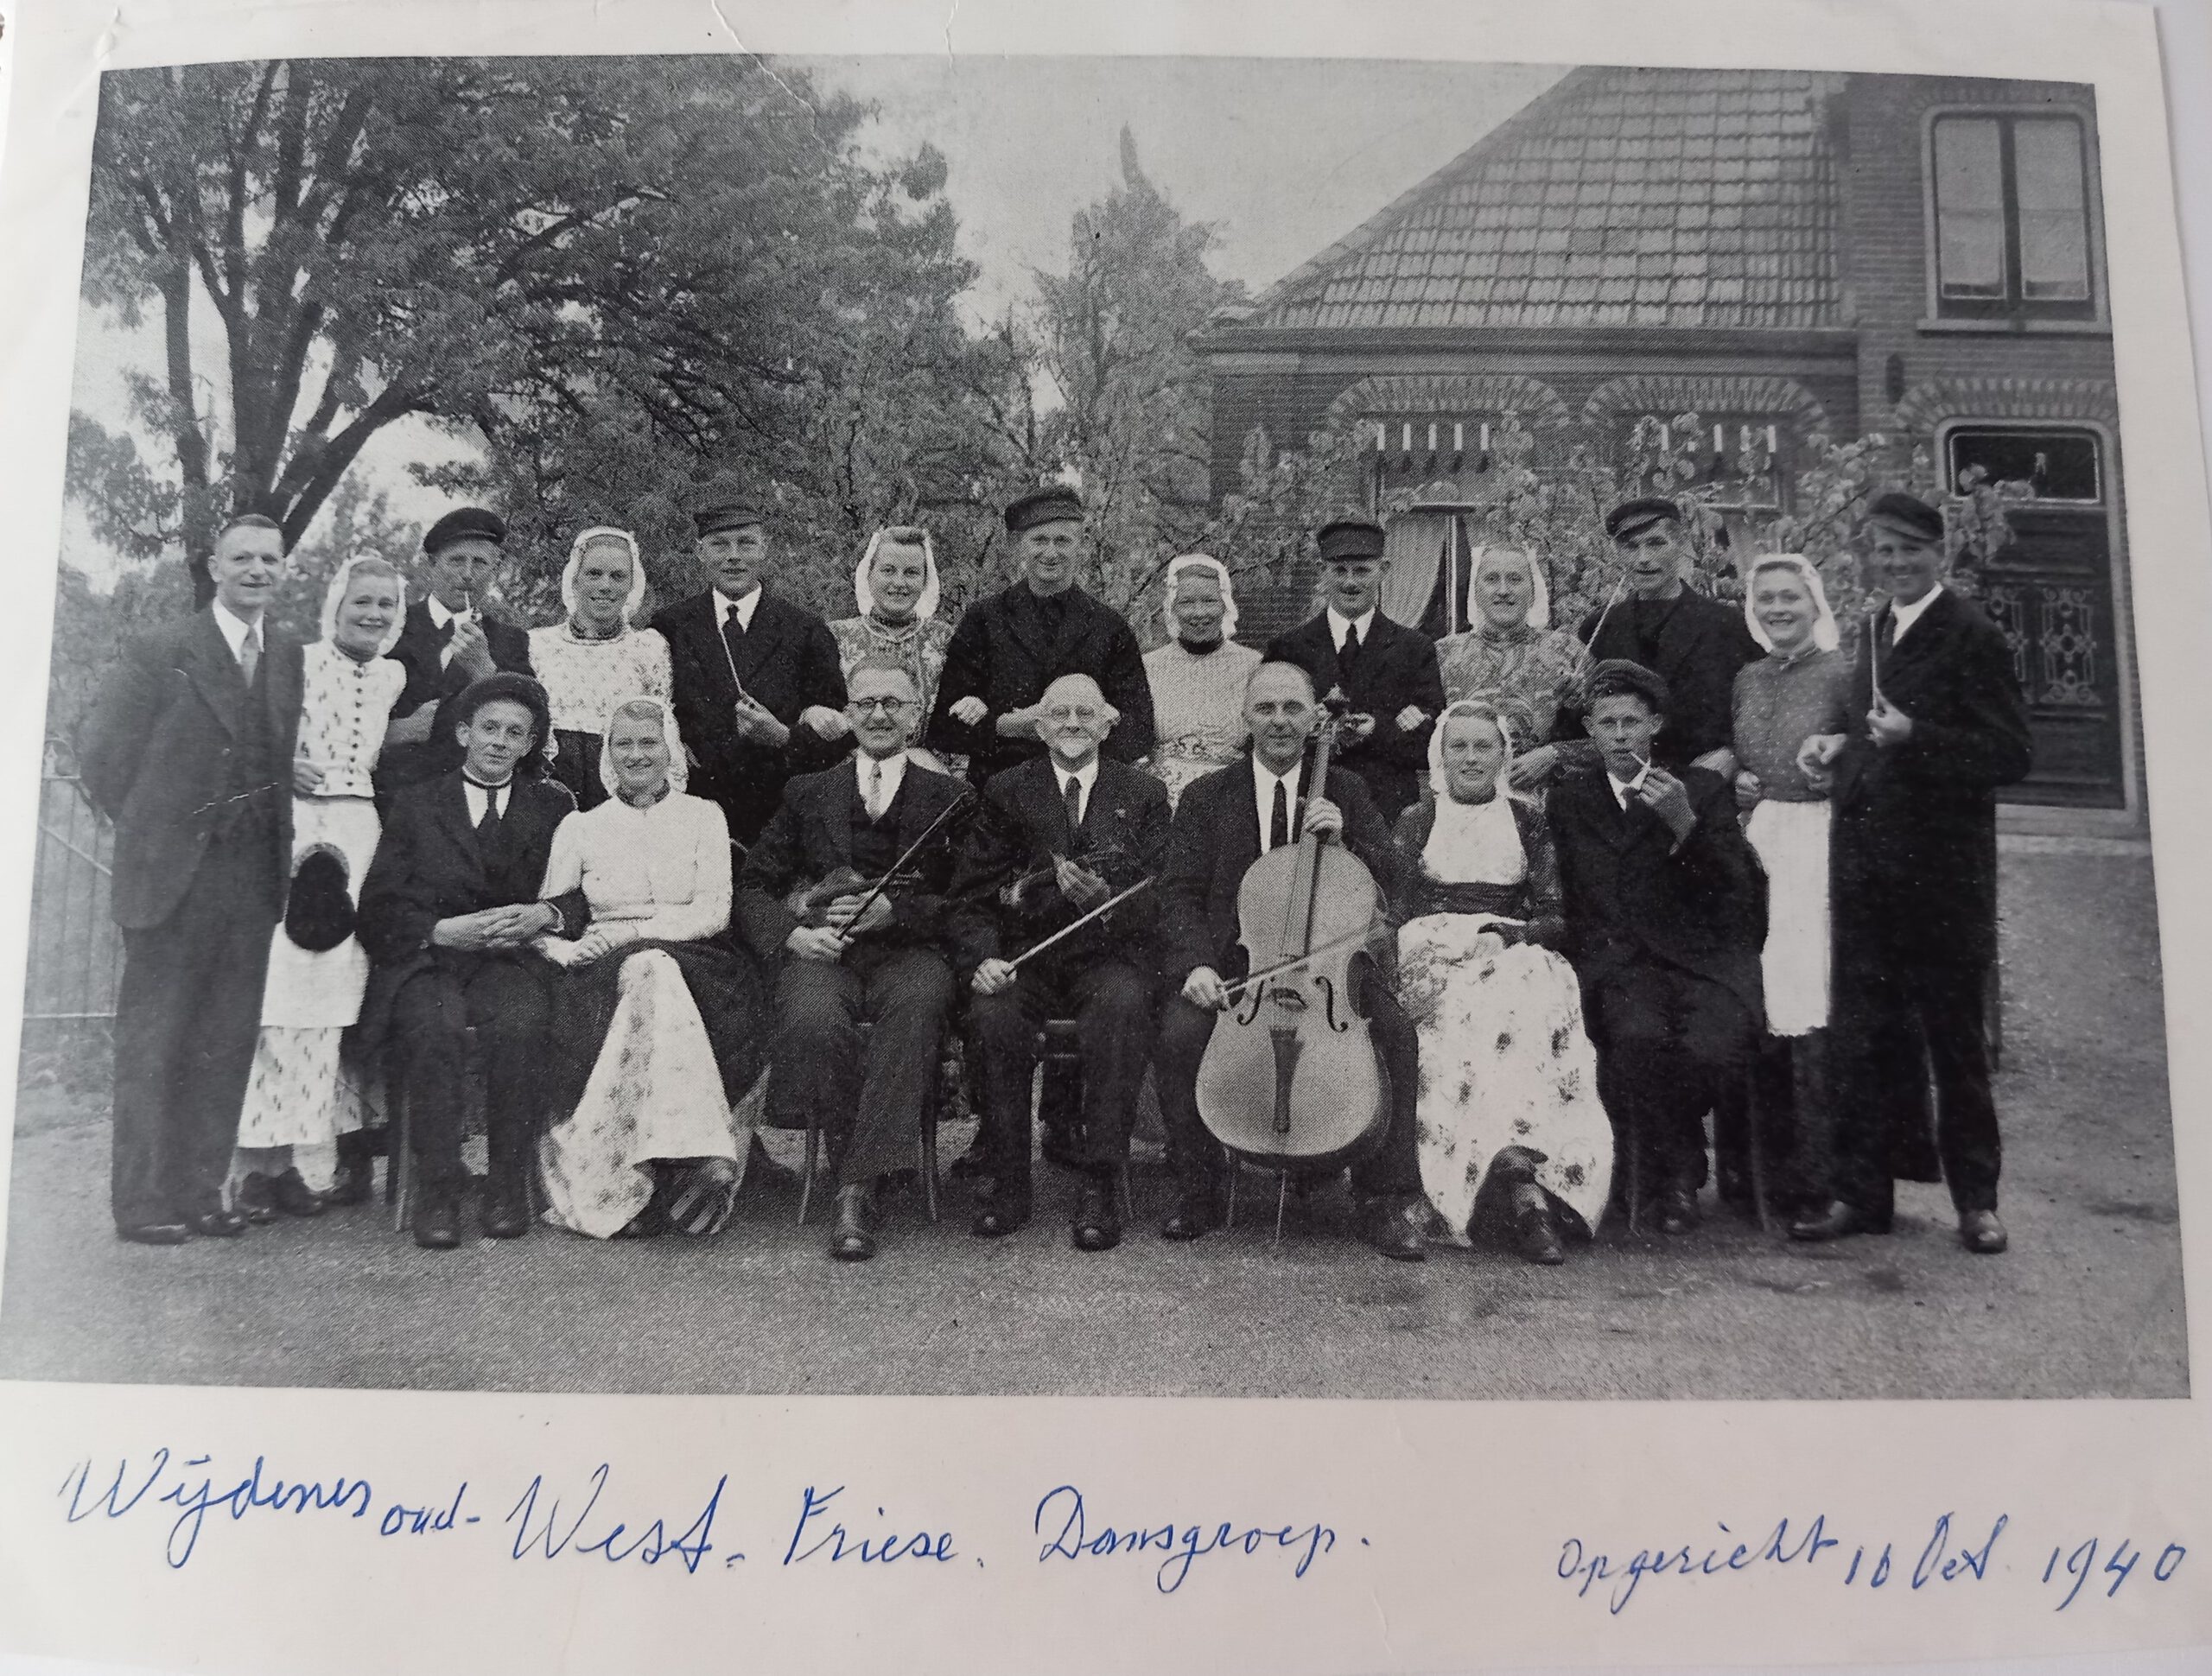 Wijdenes oud-West-Friese. Dansgroep.
Opgericht 16 Oct. 1940